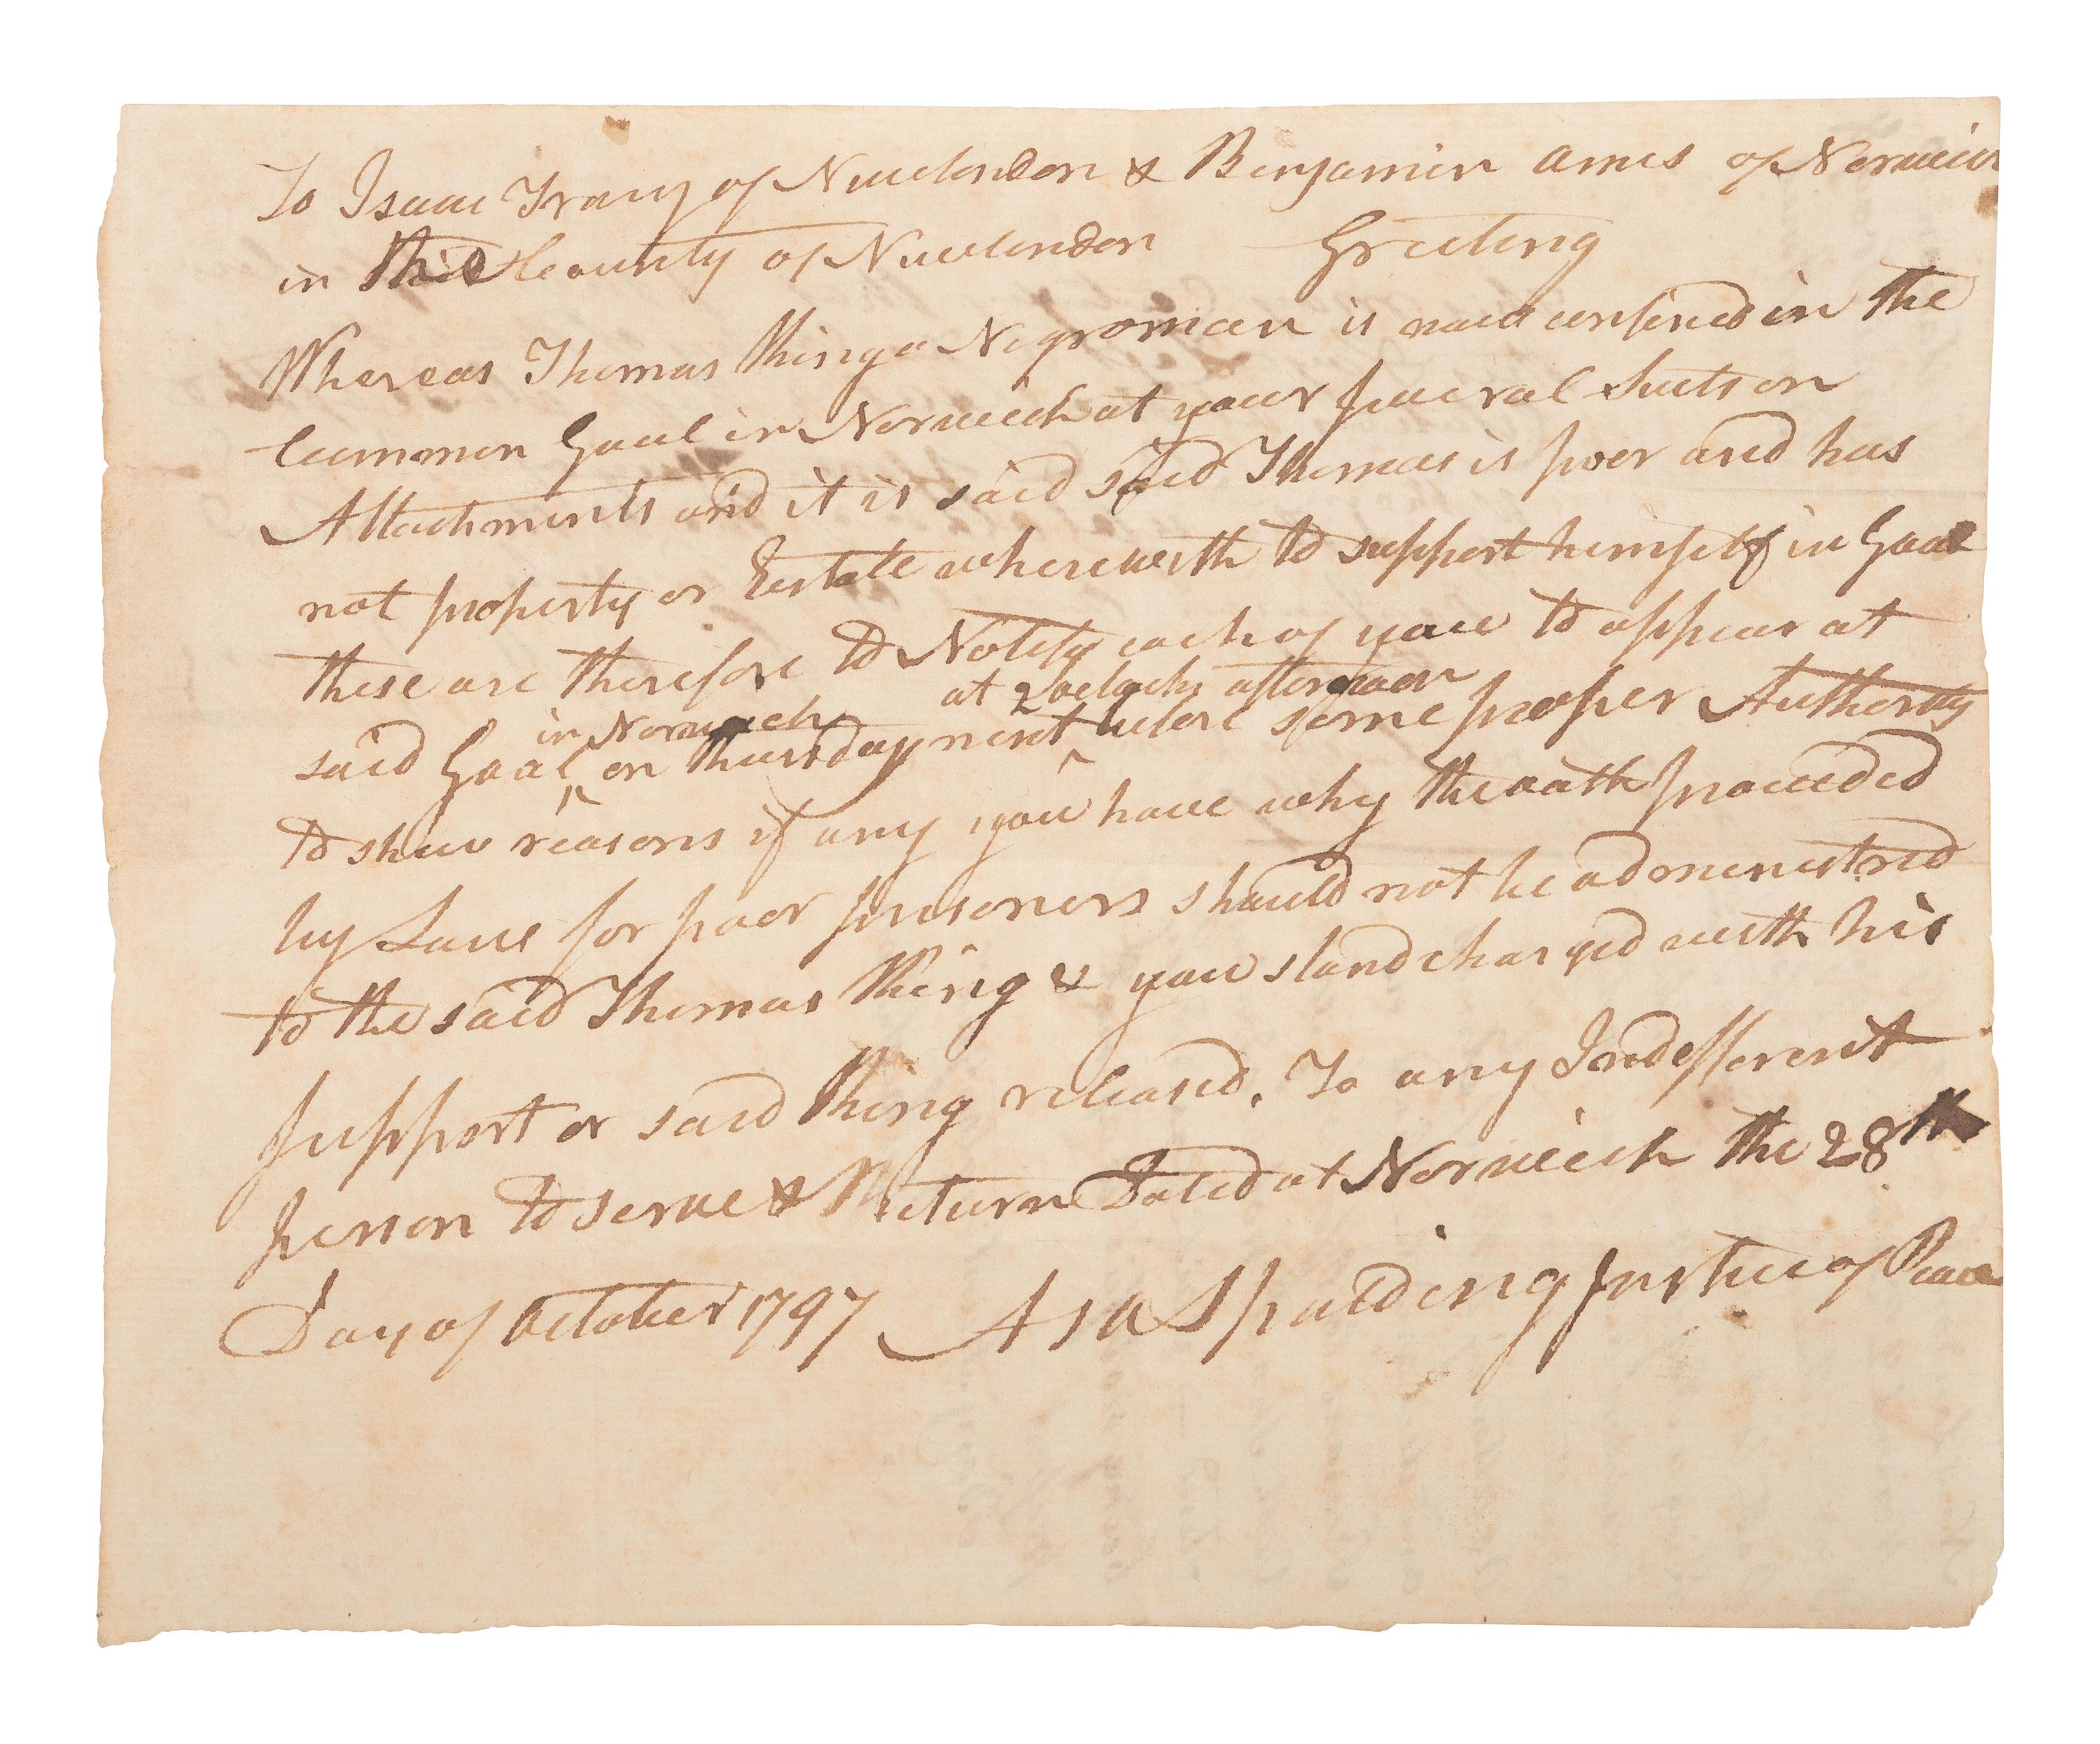 To Isaac Tracy of Newlondon & Benjamin Ames of Norwich
in the County of Newlondon Greeting
Whereas Thomas King a Negroman is now confined in the
Common Goal in Norwich at your several Suits on
Attachments and it is said said Thomas is poor and has
not property or Estate wherewith to support himself in Goal
these are therefore to Notify each of you to appear at
in Norwich at 2 oclock afternoon
said Goal on thursday next before some proper Authority
to shew reasons if any you have why the oath provided
by Law for poor prisoners should not be administred
to the said Thomas King & you stand charged with his
support or said King released. To any Indefferent
person to serve & Return Dated at Norwich the 28th
Day of October 1797 Asa Spalding Justice of Peace